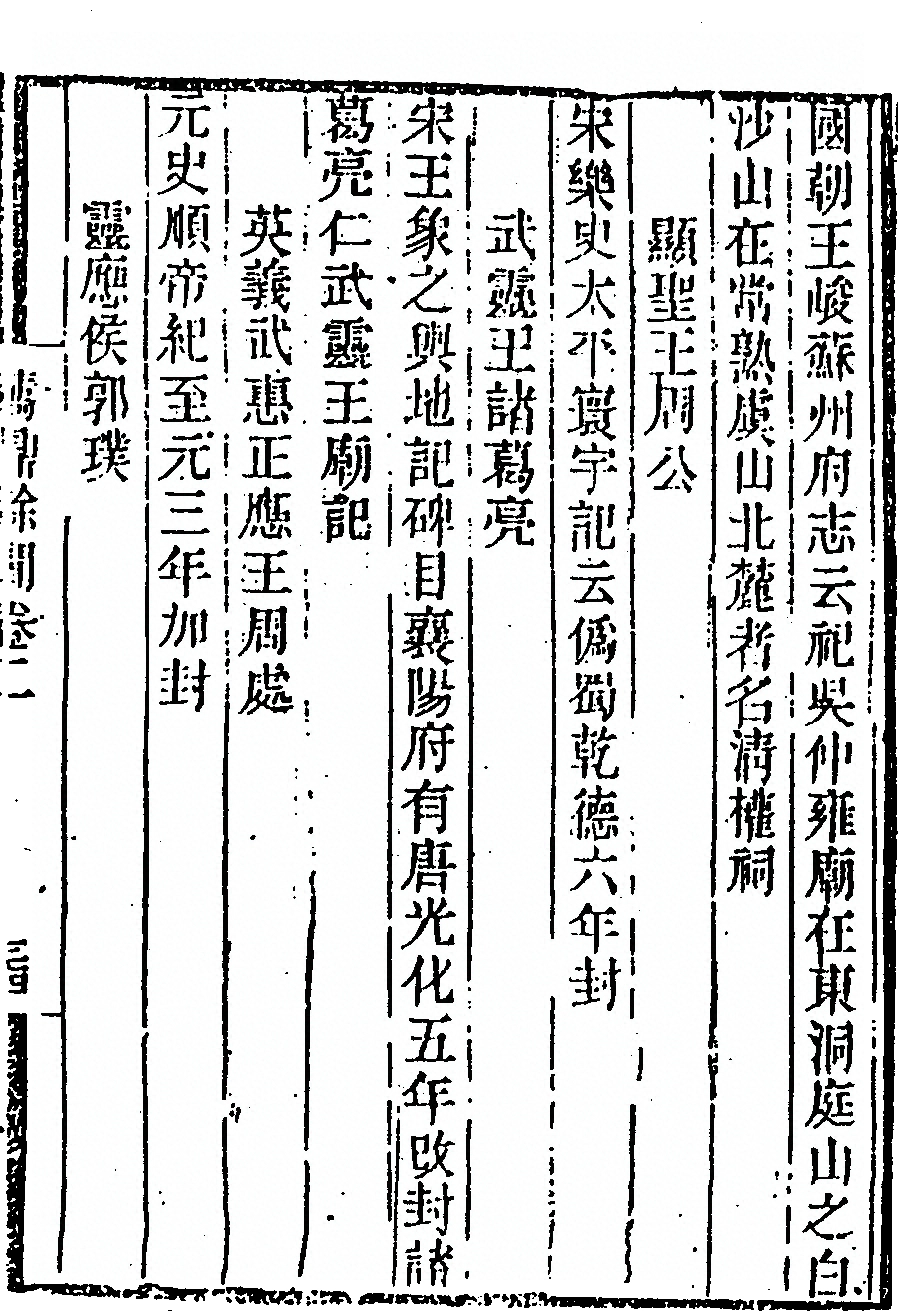 國朝王峻蘇州府志云祀吳仲雍廟在東洞庭山之白
沙山在常熟虞山北麓者名清權祠
顯聖王周公
宋樂史太平寰宇記云僞蜀乾德六年封
武靈王諸葛亮
宋王象之輿地記碑目襄陽府有唐光化五年改封諸
葛亮仁武靈王廟記
英義武惠正應王周處
元史順帝紀至元三年加封
靈應侯郭璞
餘聞卷二
三四